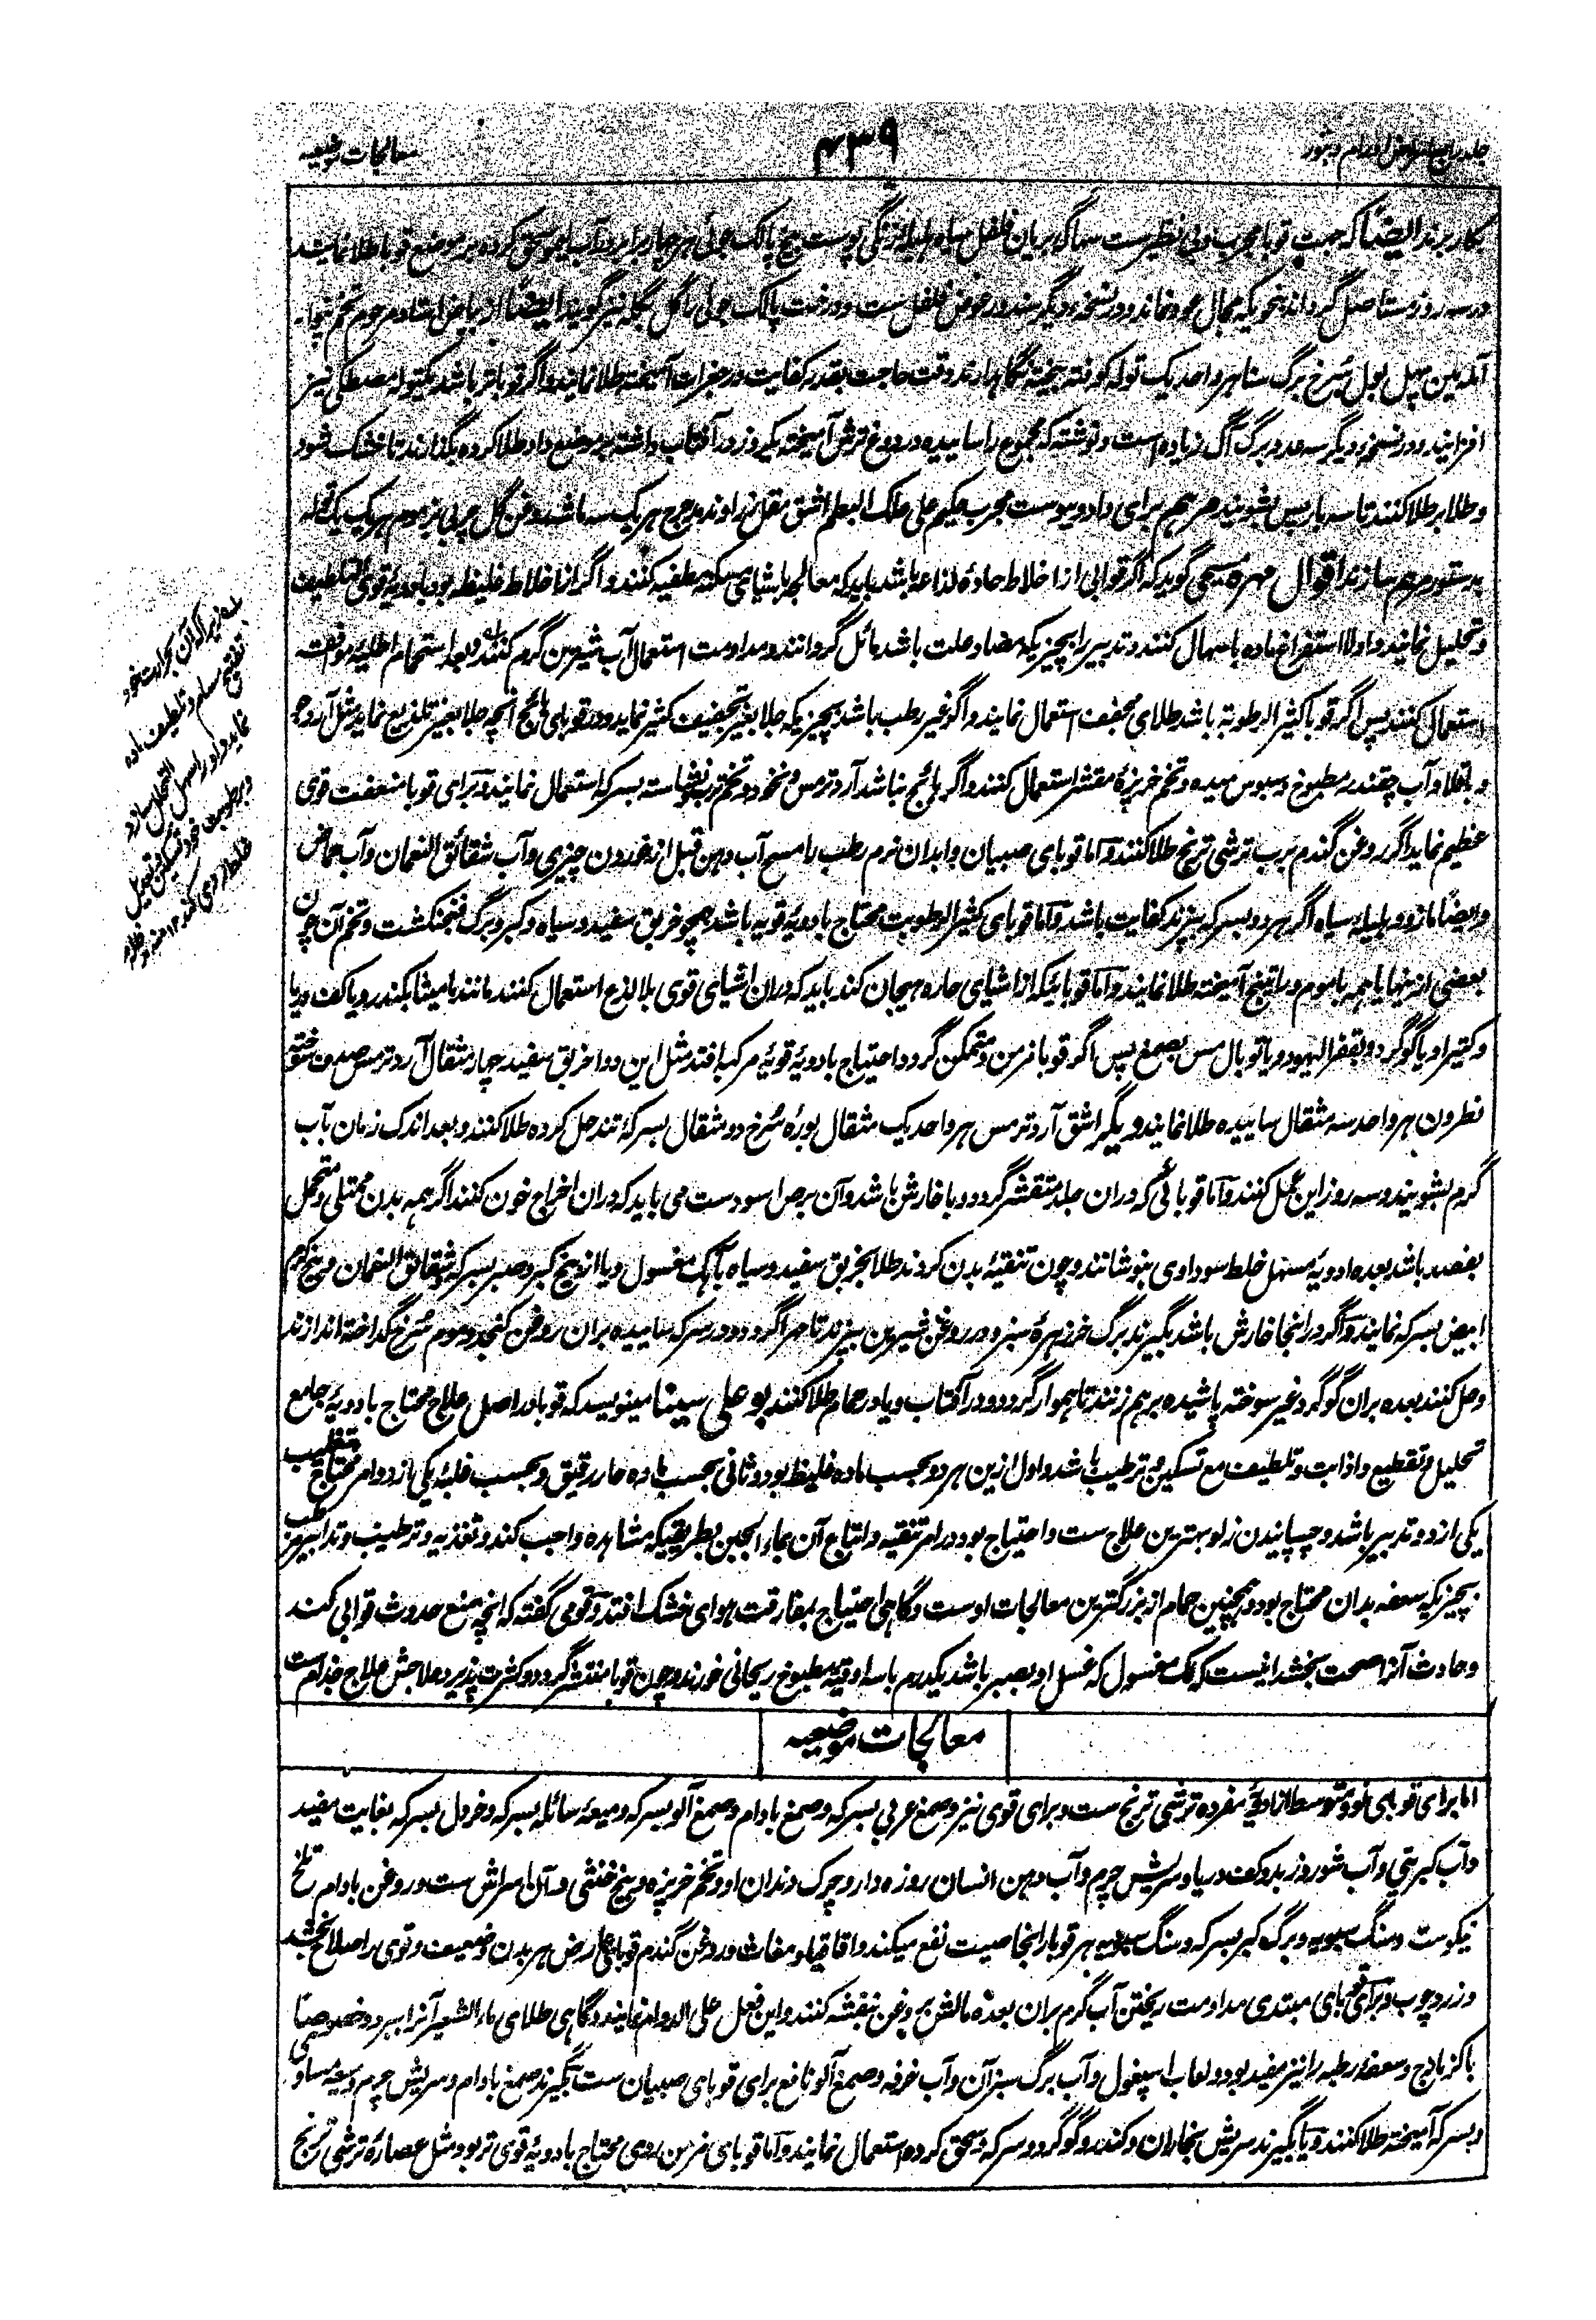 جلد رابع امراض اورام و بثور
۴۳۹
معالجات موضعیه
بکار برند ایضاً که جهت قوبا مجرب و بی نظیرست سهاگه بریان فلفل سیاه هلیله زنگی پوست بیخ پالک جوهی هر چهار برابر در آب لیمو سحق کرده بر موضع قوبا طلا نمایند
در سه روز مستاصل گرداند بنحویکه مجال عود نماند و در نسخه دیگر سندور عوض فلفل ست و درخت پالک جوهی را گل بگله نیز گویند ایضاً از بیاض استاد مرحوم تخم پنوار
آمله بین پهل بول سرخ برگ سنا هر واحد یک توله کوفته بیخته نگاهدارند وقت حاجت بقدر کفایت در جغرات آمیخته طلا نمایند و اگر قوبا تر باشد یکتوله مصطکی نیز
افزایند و در نسخه دیگر سه عدد برگ آگ زیاده است و نوشته که مجموع را ساییده در دوغ ترش آمیخته یکروز در آفتاب داشته بر موضع داد طلا کرده بگذارند تا خشک شود
و طلا بر طلا کنند تا سه بار پس بشویند مرهم برای داد و یبوست مجرب حکیم علی علک البطم اشق مقل زراوند مدحرج هر یک سه ماشه روغن گل چربی بز موم هر یک یک توله
بدستور مرهم سازند اقوال مهره مسیحی گوید که اگر قوابی از اخلاط حاده لذاعه باشد باید که معالجه باشیای مسکنه مطفیه کنند و اگر از اخلاط غلیظه بود بادویه قوی التلطیف
و تحلیل نمایند و اولا استفراغ ماده باسهال کنند و تدبیر را بچیزیکه مضاد علت باشد مائل گردانند و مداومت استعمال آب شیرین گرم کنند و بعد استحمام اطلیه موافقه
استعمال کنند پس اگر قوبا کثیر الرطوبة باشد طلای مجفف استعمال نمایند و اگر غیر رطب باشد بچیزیکه جلا بغیر تجفیف کثیر نماید و در قوبای هائج آنچه جلا بغیر تلذیع نماید مثل آرد جو
و باقلا و آب چقندر مطبوخ و سبوس میده و تخم خرپزه مقشر استعمال کنند و اگر هائج نباشد آرد ترمس و نخود و تخم ترب و نشاسته بسرکه استعمال نمایند و برای قوبا منفعت قوی
عظیم نماید اگر روغن گندم برب ترشی ترنج طلا کنند و اما قوبای صبیان و ابدان نرم رطب را مسح آب دهن قبل از خوردن چیزی و آب شقائق النعمان و آب حماض
و ایضاً مازو و هلیله سیاه اگر هر دو بسرکه بپزند کفایت باشد و اما قوبای کثیر الرطوبت محتاج بادویه قویه باشد همچو خربق سفید و سیاه و کبر و برگ فنجنکشت و تخم آن چون
بعضی ازینها یا همه با موم و راتینج آمیخته طلا نمایند و اما قوبائیکه از اشیای حاره هیجان کند باید که دران اشیای قوی بلا لذع استعمال کنند مانند مامیثا بکندر و یا کف دریا
و کتیرا و یا گوگرد و بقفر الیهود و یا توبال مس بصمغ پس اگر قوبا مزمن و متمکن گردد احتیاج بادویه قویه مرکبه افتد مثل این دوا خربق سفید چهار مثقال آرد ترمس صدف سوخته
نطرون هر واحد سه مثقال ساییده طلا نمایند دیگر اشق آرد ترمس هر واحد یک مثقال بوره سرخ دو مثقال بسرکه تند حل کرده طلا کنند و بعد اندک زمان بآب
گرم بشویند و سه روز این عمل کنند و اما قوبائی که دران جلد متقشر گردد و با خارش باشد و آن برص اسود ست می باید که دران اخراج خون کنند اگر همه بدن ممتلی و متحمل
بفصد باشد بعده ادویه مسهل خلط سوداوی بنوشانند و چون تنقیه بدن کردند طلا بخربق سفید و سیاه بآهک مغسول و یا از بیخ کبر و صبر بسرکه و شقائق النعمان و بیخ کرم
ابیض بسرکه نمایند و اگر در اینجا خارش باشد بگیرند برگ خرزهره سبز و در روغن شیرین بپزند تا مهرا گردد و در سرکه ساییده بران روغن کنجد و موم سرخ گداخته اندازند
و حل کنند بعده بران گوگرد غیر سوخته پاشیده برهم زنند تا هموار گردد و در آفتاب و یا در حمام طلا کنند بو علی سینا مینویسد که قوبا در اصل علاج محتاج بادویه جامع
تحلیل و تقطیع و اذابت و تلطیف مع تسکین و ترطیب باشد و اول ازین هر دو بحسب ماده غلیظ بود و ثانی بحسب ماده حار رقیق و بحسب غلبه یکی ازدو امر محتاج تغلیب
یکی از دو تدبیر باشد و چسپانیدن زلو بهترین علاج ست و احتیاج بود در امر تنقیه و اتباع آن بماء الجبن بطریقیکه مشاهده واجب کند و تغذیه و ترطیب و تدابیر مرطب
بچیزیکه سعفه بدان محتاج بود و همچنین حمام از بزرگترین معالجات اوست و گاهی احتیاج بمفارقت هوای خشک افتد و قومی گفته که آنچه منع حدوث قوابی کند
و حادث آنرا صحت بخشد اینست که لک مغسول که غسل او بصبر باشد یکدرم با سه اوقیه مطبوخ ریحانی خورند و چون قوبا منتشر گردد و کثرت پذیرد علاجش علاج جذام ست
معالجات موضعیه
اما برای قوبای نو و متوسط از ادویه مفرده ترشی ترنج ست و برای قوی نیز و صمغ عربی بسرکه و صمغ بادام و صمغ آلو بسرکه و میعه سائله بسرکه و خردل بسرکه بغایت مفید
و آب کبریتی و آب شور و زبد و کف دریا و سریش چرم و آب دهن انسان روزه دار و چرک دندان او و تخم خرپزه و بیخ خنثی و آن اسراش ست و روغن بادام تلخ
نیکوست و سنگ سبویه و برگ کبر بسرکه و سنگ سبویه هر قوبا را بخاصیت نفع میکند و اقاقیا و مغاث و روغن گندم قوبای عارض هر بدن ضعیف و قوی را صلاح بخشد
و زرد چوب و برای قوبای مبتدی مداومت ریختن آب گرم بران بعده مالش بروغن بنفشه کنند و این فعل علی الدوام نمایند و گاهی طلای ماء الشعیر آنرا ببرد و خصوصاً
با کزمازج و سعفه رطبه را نیز مفید بود و لعاب اسپغول و آب برگ سبز آن و آب خرفه و صمغ آلو نافع برای قوبای صبیان ست بگیرند صمغ بادام و سریش چرم و میعه مساوی
و بسرکه آمیخته طلا کنند و یا بگیرند سریش نجاران و کندر و گوگرد و سرکه و سحق کرده استعمال نمایند و اما قوبای مزمن ردی محتاج بادویه قوی تر بود مثل عصاره ترشی ترنج
زیرا که آن بحرارت خود
تفتیح مسام و تلطیف ماده
نماید و او را سهل التحلل سازد
و برطوبت خود تسکین و تعدیل
خلط ردی کند ۱۲ منه